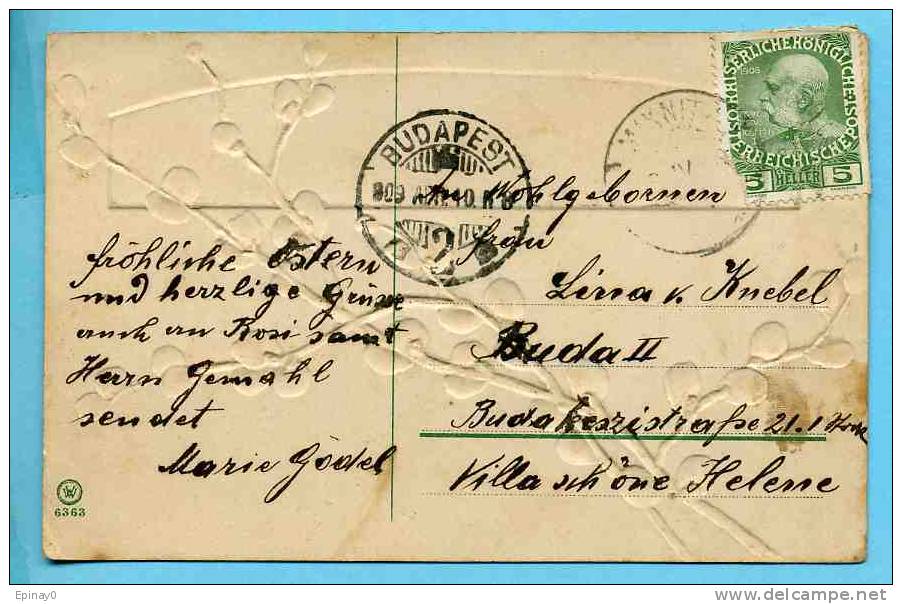 fröhliche Ostern
und herzlige Grüsse
auch an Rosi samt
Herrn Gemahl
sendet
Marie Gödel
6363
BUDAPEST
909 APR 10
2
Wohlgebornen
frau
Lina v. Knebel
Buda II
Budakeszistraße 21. 1 Stock
Villa schöne Helene
KAISERLICHE KÖNIGLICHE
ÖSTERREICHISCHE POST
1908
5 HELLER 5
Epinay0
delcampe.net